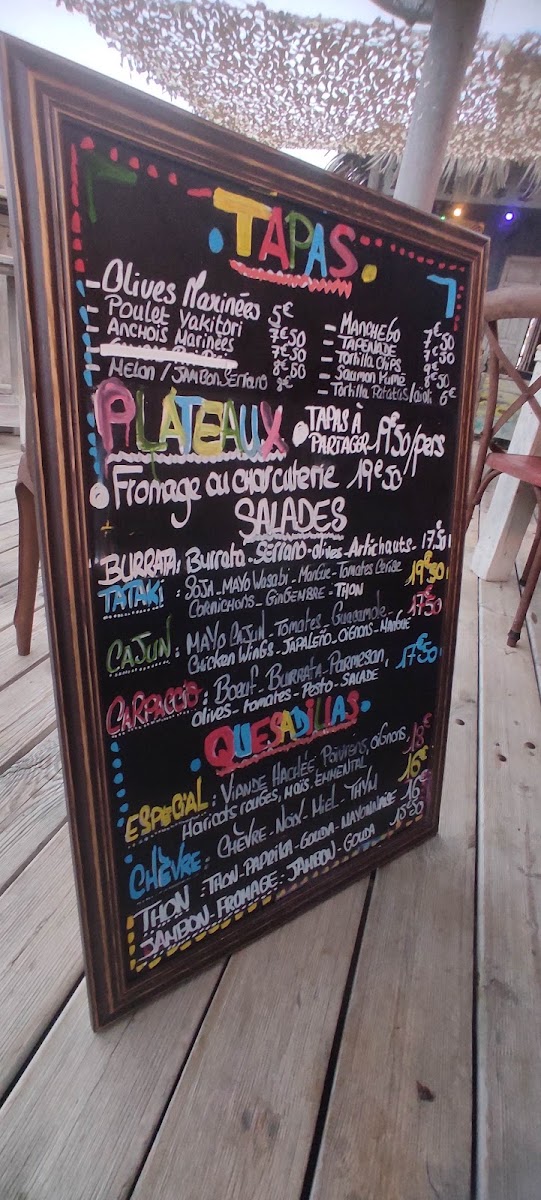 TAPAS
- Olives Marinées 5€
- Poulet Yakitori 7€50
- Anchois Marinées 7€50
8€50
- Melon / Jambon Serrano 9€
- MANCHEGO 7€50
- TAPENADE 7€50
- Tortilla Chips 9€
- Saumon Fumé 8€50
- Tortilla Patatas/aïoli 6€
PLATEAUX
• TAPAS À PARTAGER 19€50/pers
• Fromage ou charcuterie 19€50
SALADES
BURRATA: Burrata - Serrano - olives - Artichauts - 17€50
TATAKi : SOJA - MAYO Wasabi - Mangue - Tomates Cerise 19€50
CORNICHONS - GINGEMBRE - THON
CAJUN : MAYO CAJUN - Tomates - Guacamole - 17€50
CHICKEN WINGS - JAPALEÑO - OIGNONS - MANGUE
CARPACCIO : Bœuf - BURRATA - Parmesan, 17€50
Olives - tomates - Pesto - SALADE
QUESADILLAS
ESPECIAL : VIANDE HACHÉE, Poivrons, oignons, 18€
Haricots rouges, maïs, EMMENTAL
CHÈVRE : CHÈVRE - NOIX - MIEL - THYM 16€
THON : THON - PAPRIKA - GOUDA - MAYONNAISE 16€
JAMBON - FROMAGE : JAMBON - GOUDA 15€50